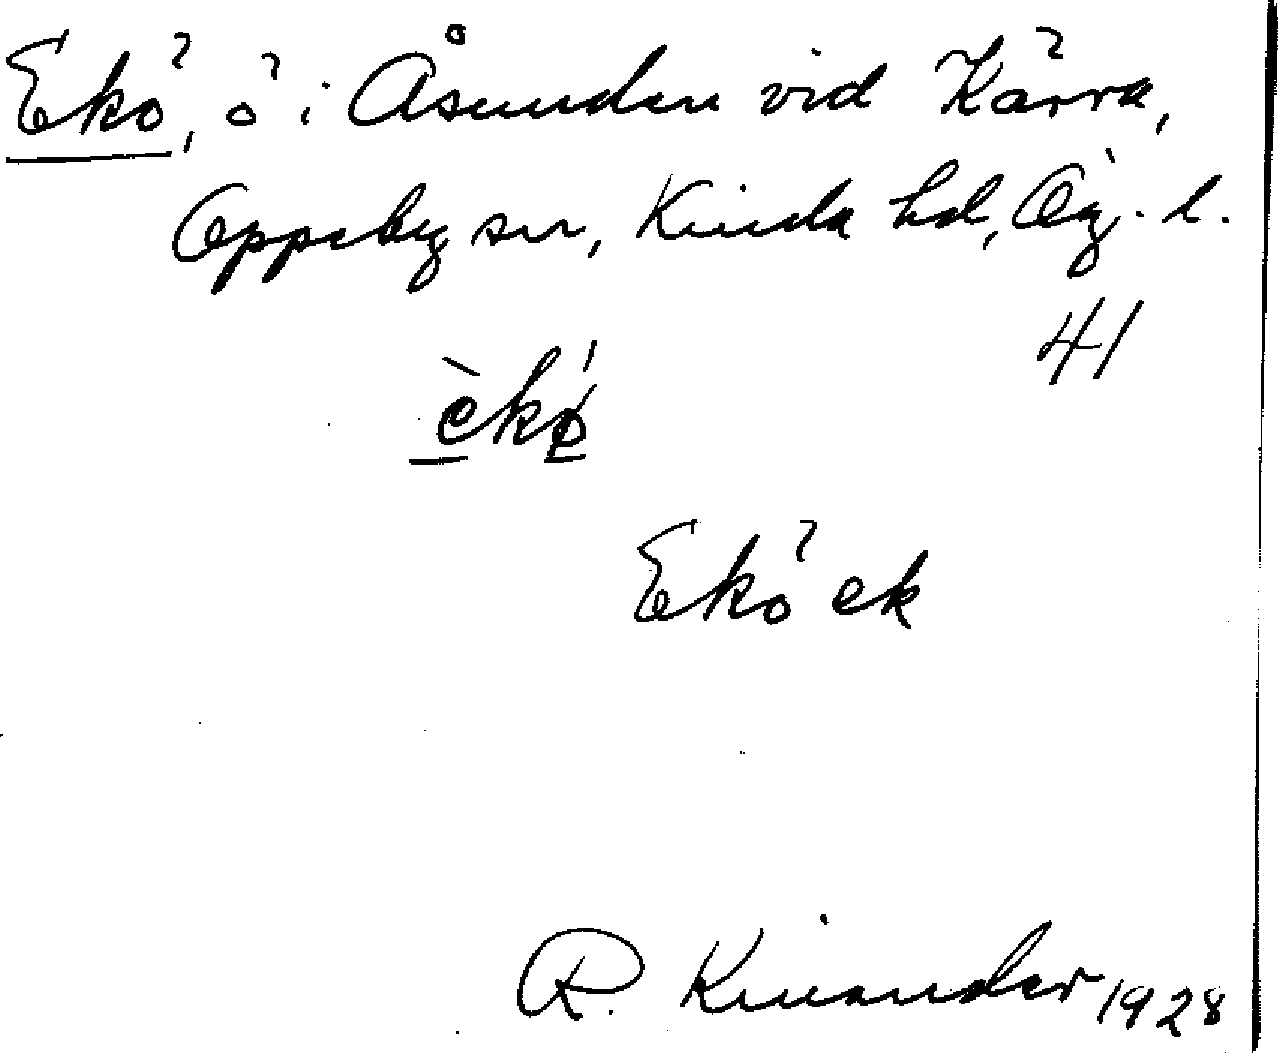 Ekö, ö i Åsunden vid Kärra,
Oppeby sn, Kinda hd, Ög. l.
41
èkø̀
Ekö ek
R. Kinander 1928